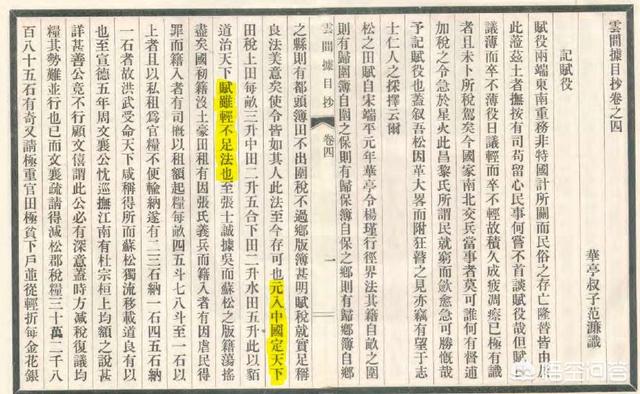 雲間據目抄卷之四
華亭叔子范濂識
記賦役
賦役兩端東南重務非特國計所關而民俗之存亡隆替皆由
此蒞茲土者撫按有司苟留心民事何嘗不首談賦役哉但賦
議薄而卒不薄役日議輕而卒不輕故積久成疲凋瘵已極有識
者且未卜所稅駕矣今國家南北交兵當事者莫可誰何有督逋
加稅之令急於星火此昌黎氏所謂民就窮而歛愈急可勝慨哉
予記賦役也蓋叙吾松因革大畧而附狂瞽之見亦竊有望于志
士仁人之採擇云爾
松之田賦自宋端平元年華亭令楊瑾行經界法其籍自畝之圍
則有歸圍簿自圍之保則有歸保簿自保之鄉則有歸鄉簿自鄉
雲間據目抄
卷四
一
之縣則有都頭簿田不出圍稅不過鄉版簿甚明賦稅就實足稱
良法美意矣使令皆如其人此法至今存可也元入中國定天下
田稅上田每畝三升中田二升五合下田二升水田五升此以貊
道治天下賦雖輕不足法也至張士誠據吳而蘇松之版籍蕩搖
盡矣國初籍沒土豪田租有因張氏義兵而籍入者有因虐民得
罪而籍入者有司槪以租額起糧每畝四五斗七八斗至一石以
上者且以私租為官糧不便輸納遂有二三石納一石四五石納
一石者故洪武受命天下咸稱得所而蘇松獨流移載道良有以
也至宣德五年周文襄公忱巡撫江南有杜宗桓上均額之說甚
詳甚善公竟不行顧文僖謂此公必有深意蓋時方減稅復議均
糧其勢難並行也已而文襄疏請得減松郡稅糧三十萬二千八
百八十五石有奇又請極重官田極貧下戶並從輕折每金花銀
悟空问答